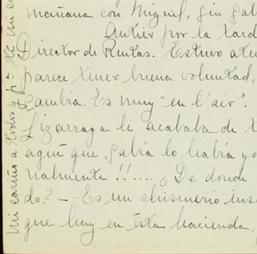 mañana con Miguel, sin
Antier por la tard
Director de Rentas. Estuvo aten
parece tener buena voluntad,
cambia. Es muy "en l'air".
Lizarraga le acababa de
aquí que había lo había yo
rialmente!!.... ¿De donde
do? - Es un chismerio ins
que hay en esta hacienda,
Mi cariño a todos y